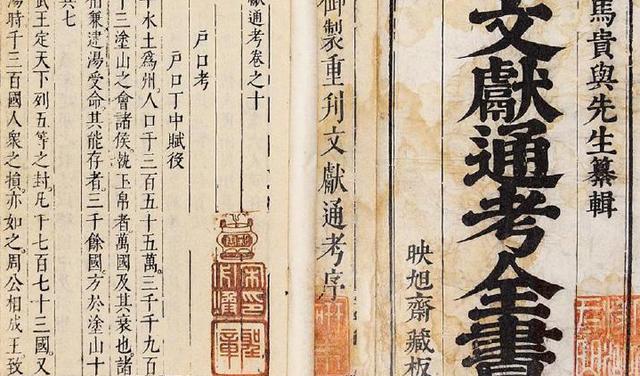 馬貴與先生纂輯
文獻通考全書
映旭齋藏板
御製重刋文獻通考序
獻通考卷之十
戶口考
戶口丁中賦役
平水土爲州人口千三百五十五萬三千九百
十三塗山之會諸侯執玉帛者萬國及其衰也諸
相兼逮湯受命其能存者三千餘國方於塗山十
其七
武王定天下列五等之封凡千七百七十三國又
湯時千三百國人衆之損亦如之周公相成王致